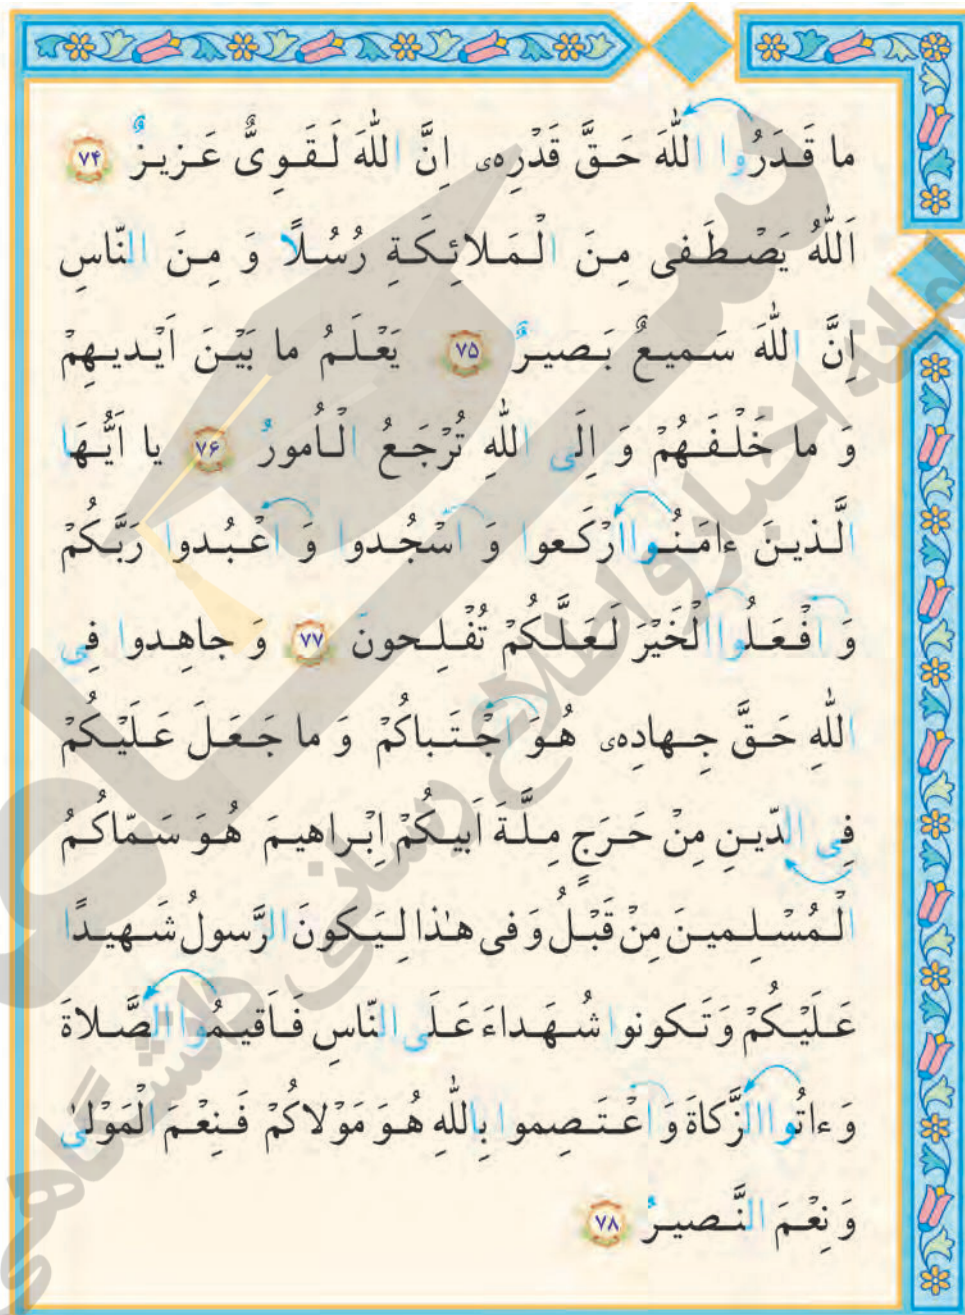 ما قَـدَرُوا اللّٰهَ حَـقَّ قَدْرِهی اِنَّ اللّٰهَ لَـقَـوِیٌّ عَـزیـزٌ ۷۴
اَللّٰهُ یَصْـطَـفی مِـنَ الْـمَـلائِـکَـةِ رُسُـلًا وَ مِـنَ النّاسِ
اِنَّ اللّٰهَ سَـمیـعٌ بَـصیـرٌ ۷۵ یَعْـلَـمُ ما بَیْـنَ اَیْـدیـهِمْ
وَ ما خَلْـفَـهُمْ وَ اِلَی اللّٰهِ تُرْجَـعُ الْـاُمورُ ۷۶ یا اَیُّـهَا
الَّـذیـنَ ءامَـنُـوا ارْکَـعوا وَ اسْجُـدوا وَ اعْـبُـدوا رَبَّـکُمْ
وَ افْـعَـلُوا الْخَیْرَ لَـعَـلَّـکُمْ تُفْـلِـحونَ ۷۷ وَ جاهِـدوا فِی
اللّٰهِ حَـقَّ جِـهادِهی هُـوَ اجْـتَـباکُمْ وَ ما جَـعَـلَ عَـلَیْـکُمْ
فِی الدّیـنِ مِنْ حَـرَجٍ مِـلَّـةَ اَبیـکُمْ اِبْـراهیـمَ هُـوَ سَـمّاکُـمُ
الْـمُسْـلِـمیـنَ مِنْ قَبْـلُ وَ فی هٰذا لِـیَـکونَ الرَّسولُ شَـهیـدًا
عَـلَیْـکُمْ وَ تَـکونوا شُـهَـداءَ عَـلَی النّاسِ فَـاَقیـمُوا الصَّـلاةَ
وَ ءاتُوا الزَّکاةَ وَ اعْـتَـصِموا بِاللّٰهِ هُـوَ مَوْلاکُمْ فَـنِعْـمَ الْمَوْلیٰ
وَ نِعْـمَ النَّـصیـرُ ۷۸